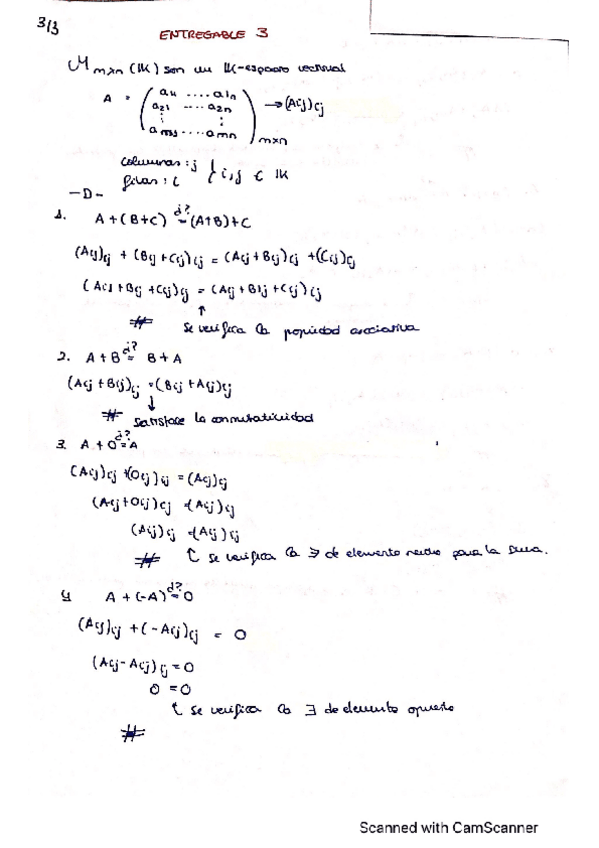 3/3
ENTREGABLE 3
M mxn (IK) son un IK-espacio vectorial
A = ( a11 .... a1n
a21 ---- a2n → (Aij)ij
⋮ ⋮
am1 .... amn ) mxn
columnas : j } i, j ∈ IK
filas : i
-D-
1. A + (B + C) =¿? (A+B) + C
(Aij)ij + (Bij + Cij)ij = (Aij + Bij)ij + (Cij)ij
(Aij + Bij + Cij)ij = (Aij + Bij + Cij)ij
↑
# se verifica la propiedad asociativa
2. A + B =¿? B + A
(Aij + Bij)ij = (Bij + Aij)ij
↓
# satisface la conmutatividad
3. A + 0 =¿? A
(Aij)ij + (0ij)ij = (Aij)ij
(Aij + 0ij)ij = (Aij)ij
(Aij)ij = (Aij)ij
# ↑ se verifica la ∃ de elemento neutro para la suma.
4 A + (-A) =¿? 0
(Aij)ij + (-Aij)ij = 0
(Aij - Aij)ij = 0
0 = 0
↑ se verifica la ∃ de elemento opuesto
#
Scanned with CamScanner